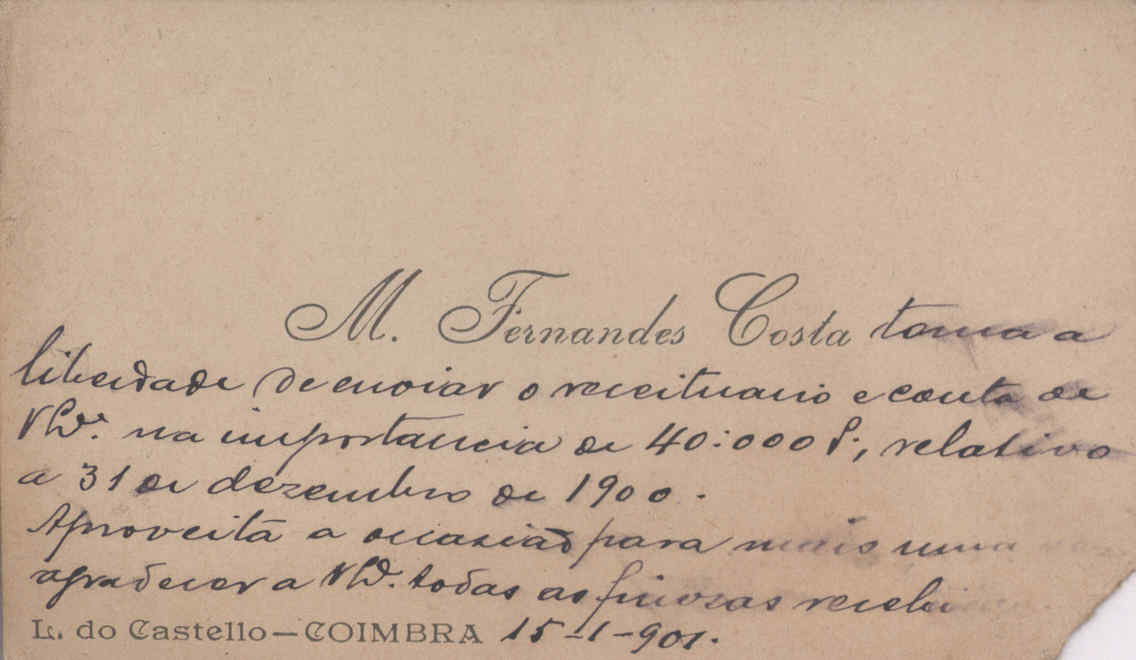 M. Fernandes Costa toma a
liberdade de enviar o receituario e conta de
na importancia de 40:000 relativo
a 31 de dezembro de 1900.
Aproveita a occasião para mais uma
agradecer a todas as finezas
L. do Castello—COIMBRA 15-1-901.